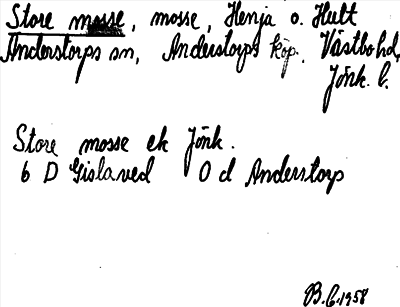 Store mosse, mosse, Henja o. Hult
Anderstorps sn, Anderstorps köp. Västbo hd,
Jönk. l.
Store mosse ek Jönk.
6 D Gislaved 0 d Anderstorp
B.C. 1958